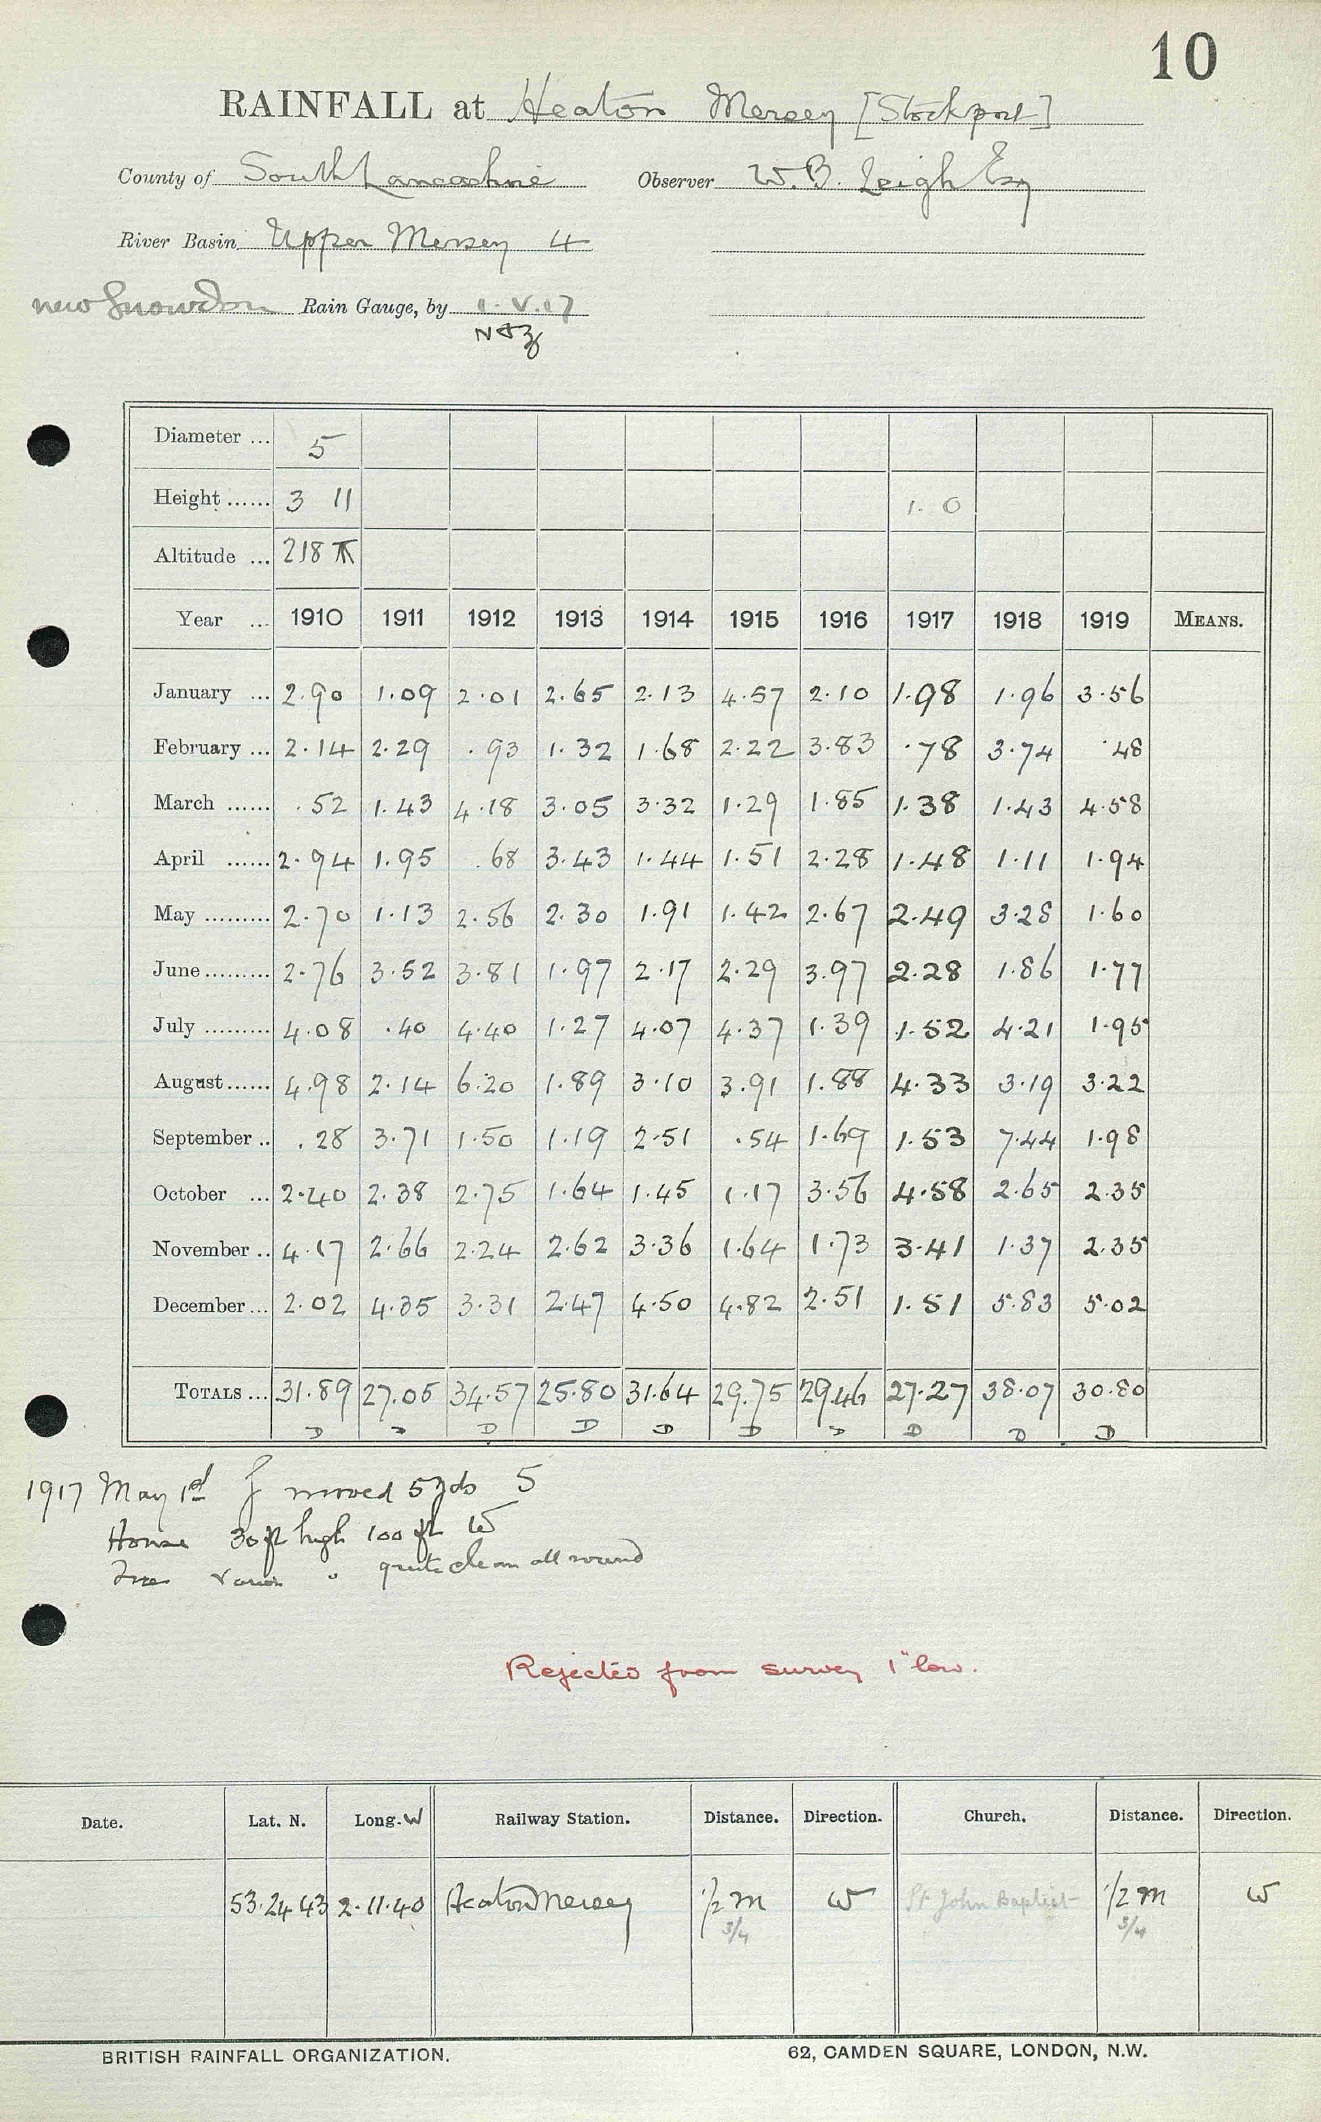 10
RAINFALL at Heaton Mersey [Stockport]
County of South Lancashire Observer W. B. Leigh Esq
River Basin Upper Mersey 4
new Snowdon Rain Gauge, by 1. V. 17
N & Z
Diameter ... 5
Height ...... 3 11 1. 0
Altitude ... 218
Year ... 1910 1911 1912 1913 1914 1915 1916 1917 1918 1919 MEANS.
January ... 2.90 1.09 2.01 2.65 2.13 4.57 2.10 1.98 1.96 3.56
February ... 2.14 2.29 .93 1.32 1.68 2.22 3.83 .78 3.74 .48
March ...... .52 1.43 4.18 3.05 3.32 1.29 1.85 1.38 1.43 4.58
April ...... 2.94 1.95 .68 3.43 1.44 1.51 2.28 1.48 1.11 1.94
May ......... 2.70 1.13 2.56 2.30 1.91 1.42 2.67 2.49 3.28 1.60
June ......... 2.76 3.52 3.81 1.97 2.17 2.29 3.97 2.28 1.86 1.77
July ......... 4.08 .40 4.40 1.27 4.07 4.37 1.39 1.52 4.21 1.95
August ...... 4.98 2.14 6.20 1.89 3.10 3.91 1.88 4.33 3.19 3.22
September .. .28 3.71 1.50 1.19 2.51 .54 1.69 1.53 7.44 1.98
October ... 2.40 2.38 2.75 1.64 1.45 1.17 3.56 4.58 2.65 2.35
November .. 4.17 2.66 2.24 2.62 3.36 1.64 1.73 3.41 1.37 2.35
December ... 2.02 4.35 3.31 2.47 4.50 4.82 2.51 1.51 5.83 5.02
TOTALS ... 31.89 27.05 34.57 25.80 31.64 29.75 29.46 27.27 38.07 30.80
D D D D D D D D D D
1917 May 1st g moved 5 yds S
House 30 ft high 100 ft W
Trees various " quite clean all round
Rejected from survey 1" low.
Date. Lat. N. Long. W Railway Station. Distance. Direction. Church. Distance. Direction.
53.24.43 2.11.40 Heaton Mersey 1/2 m W St John Baptist 1/2 m W
3/4 3/4
BRITISH RAINFALL ORGANIZATION. 62, CAMDEN SQUARE, LONDON, N.W.